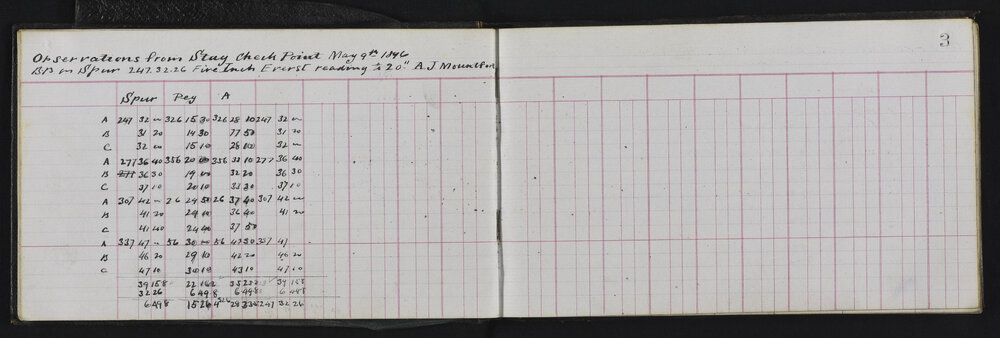 3
Observations from Stag Check Point May 9th 1896
BB on Spur 247.32.26 Five Inch Everst reading to 20" A.J Mountfort
Spur Peg A
A 247 32 00 326 15 30 326 28 10 247 32 00
B 31 20 14 30 27 50 31 20
C 32 00 15 10 28 00 32 00
A 277 36 40 356 20 00 356 33 10 277 36 40
B 277 36 30 19 00 32 20 36 30
C 37 10 20 10 33 30 37 10
A 307 42 00 26 24 50 26 37 40 307 42 00
B 41 20 24 10 36 40 41 20
C 41 40 24 40 37 50
A 337 47 00 56 30 00 56 43 30 337 47
B 46 20 29 10 42 20 46 20
C 47 10 30 10 43 10 47 10
39 158 22 162 35 222 39 158
32 26 6 498 6 498 6 498
6 498 15 26 4 326 28 335 247 32 26